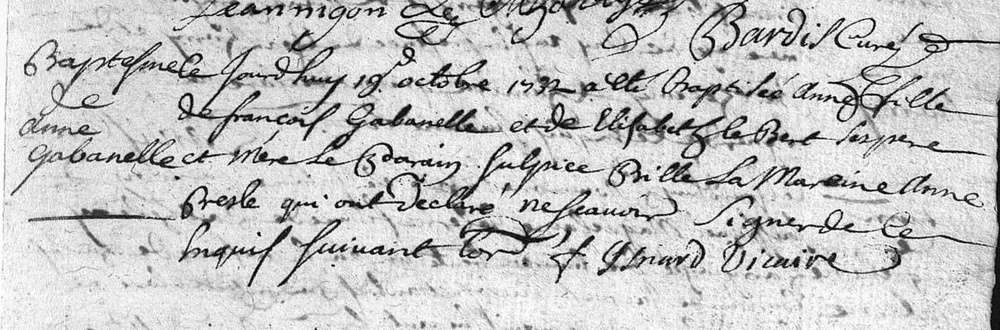 Jeannigon
Bardis Curé
Baptesme de Anne Gabanelle
Le Jourdhuy 19e octobre 1732 a esté Baptisée Anne fille
de françois Gabanelle et de Elisabeth le Bert ses pere
et mere Le parain sulpice Brille La Mareine Anne
Presle qui ont declaré ne scavoir signer de Ce
Inquis suivant Lor
Vicaire